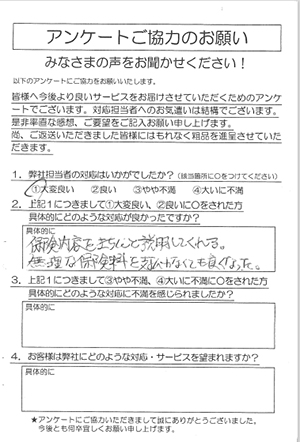 アンケートご協力のお願い
みなさまの声をお聞かせください！
以下のアンケートにご協力をお願いいたします。
皆様へ今後より良いサービスをお届けさせていただくためのアンケ
ートでございます。対応担当者へのお気遣いは結構でございます。
是非率直な感想、ご要望をご記入お願い申し上げます。
尚、ご返送いただきました皆様にはもれなく粗品を進呈させていた
だきます。
1．弊社担当者の対応はいかがでしたか？（該当箇所に○をつけてください）
①大変良い ②良い ③やや不満 ④大いに不満
2．上記１につきまして①大変良い、②良いに○をされた方
具体的にどのような対応が良かったですか？
具体的に
保険内容をきちんと説明してくれる。
無理な保険料を払わなくても良くなった。
3．上記１につきまして③やや不満、④大いに不満に○をされた方
具体的にどのような対応に不満を感じられましたか？
具体的に
4．お客様は弊社にどのような対応・サービスを望まれますか？
具体的に
★アンケートにご協力いただきまして誠にありがとうございました。
今後とも何卒宜しくお願い申し上げます。